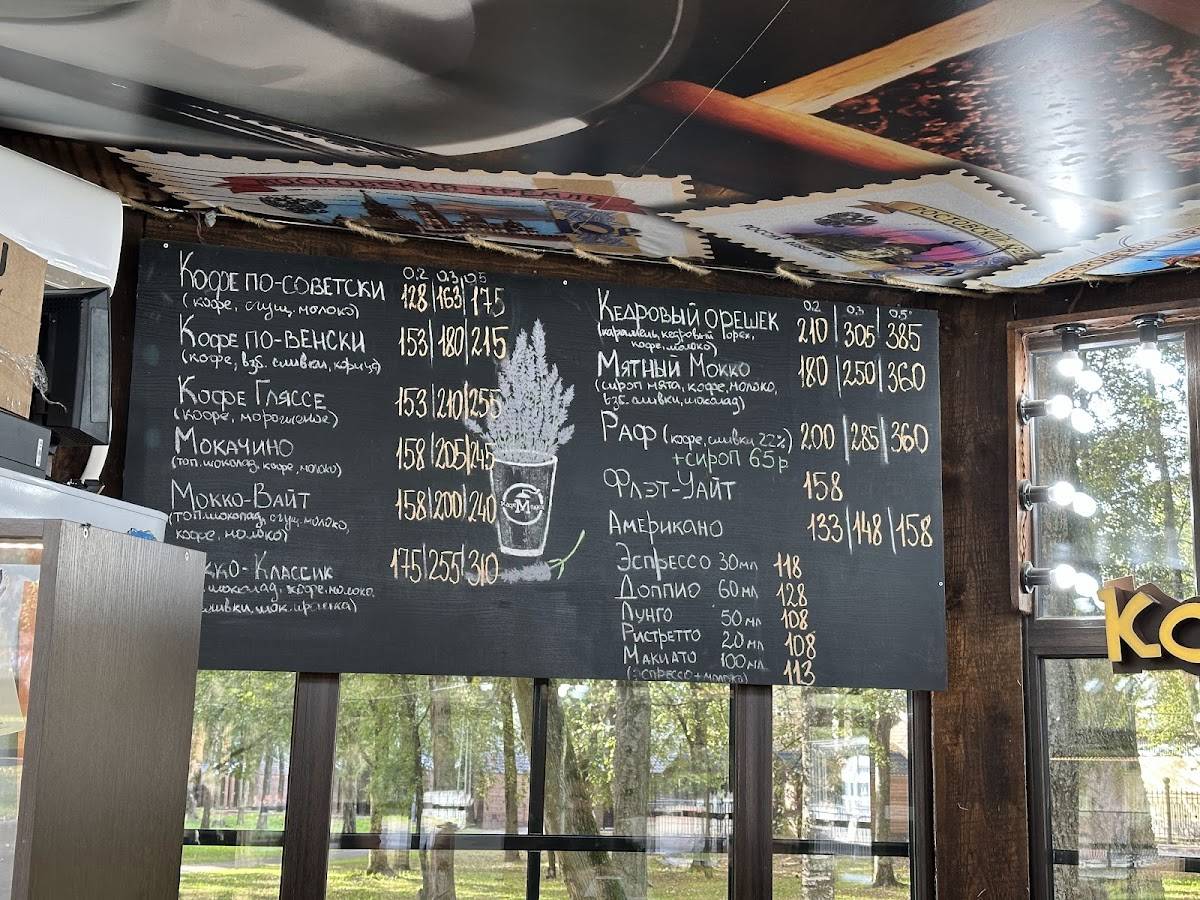 0,2 0,3 0,5
Кофе по-советски 128|163|175
(кофе, сгущ. молоко)
Кофе по-венски 153|180|215
(кофе, взб. сливки, корица)
Кофе Гляссе 153|210|255
(кофе, мороженое)
Мокачино 158|205|245
(топ. шоколад, кофе, молоко)
Мокко-Вайт 158|200|240
(топ. шоколад, сгущ. молоко,
кофе, молоко)
кко-Классик 175|255|310
шоколад, кофе, молоко,
сливки, шок. крошка)
0,2 0,3 0,5
Кедровый орешек 210|305|385
(карамель, кедровый орех,
кофе, молоко)
Мятный Мокко 180|250|360
(сироп мята, кофе, молоко,
взб. сливки, шоколад)
Раф (кофе, сливки 22%) 200|285|360
+сироп 65р
Флэт-Уайт 158
Американо 133|148|158
Эспрессо 30мл 118
Доппио 60мл 128
Лунго 50мл 108
Ристретто 20мл 108
Макиато 100мл 113
(эспрессо+молоко)
Ко